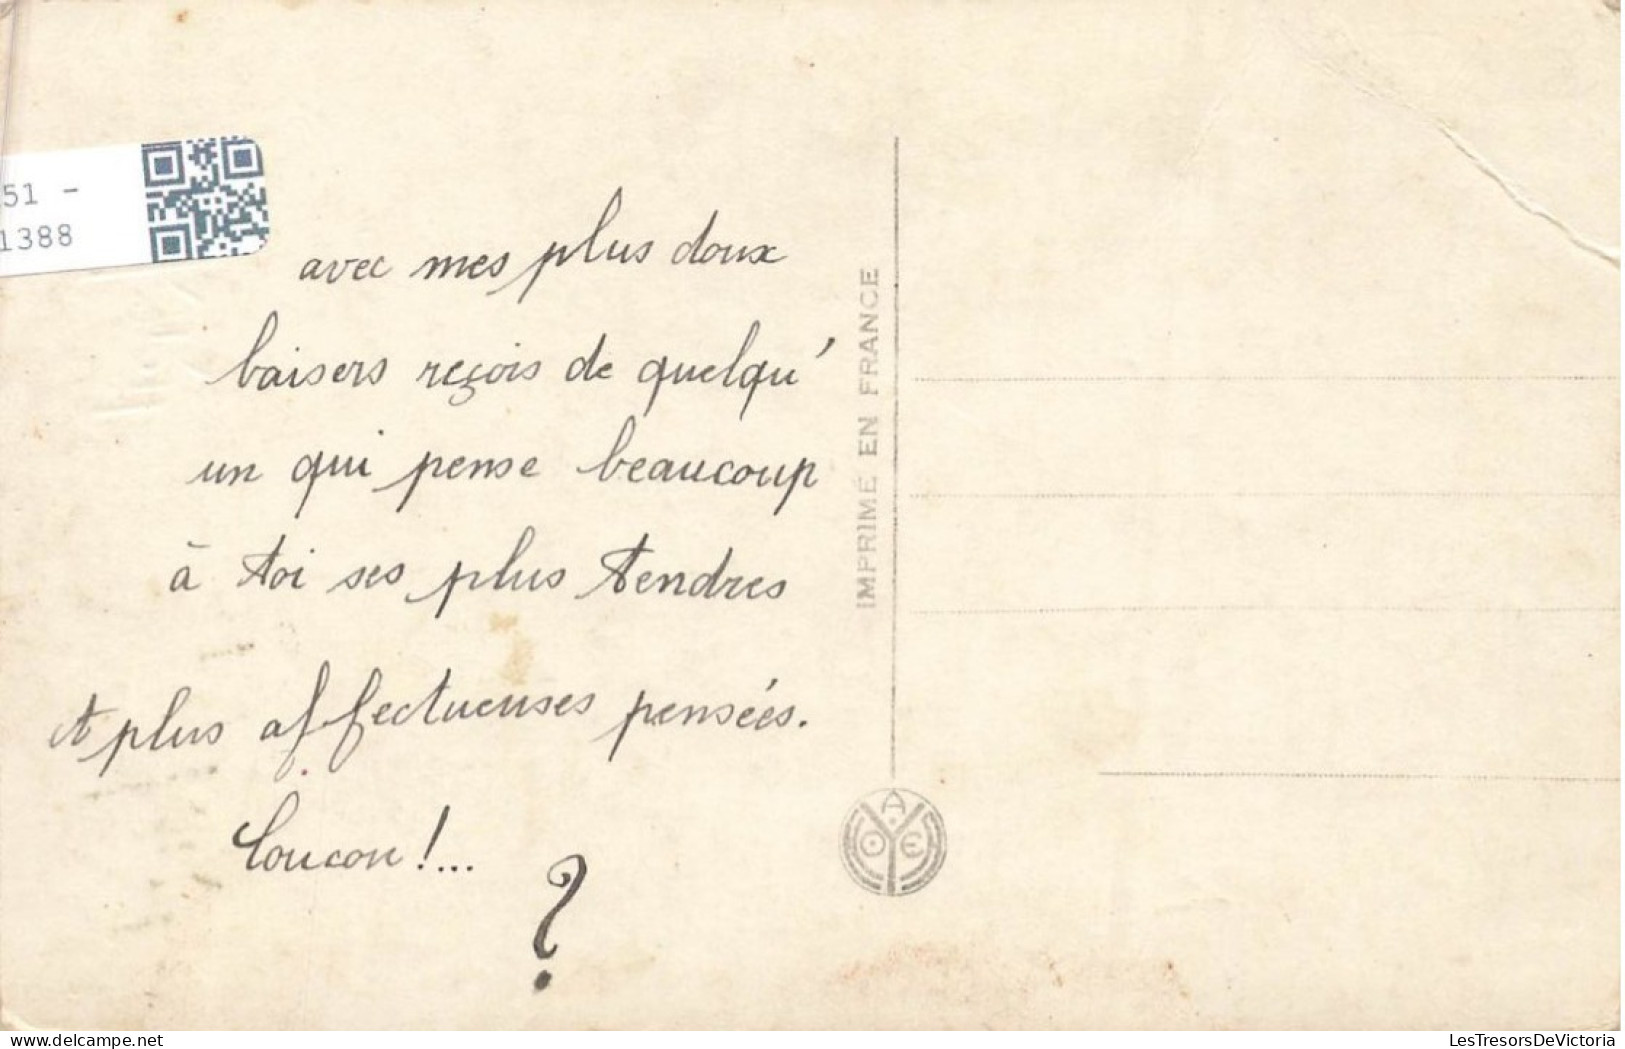 51 -
1388
avec mes plus doux
baisers reçois de quelqu'
un qui pense beaucoup
à toi ses plus tendres
et plus affectueuses pensées.
Coucou !...
?
IMPRIMÉ EN FRANCE
delcampe.net
LesTresorsDeVictoria